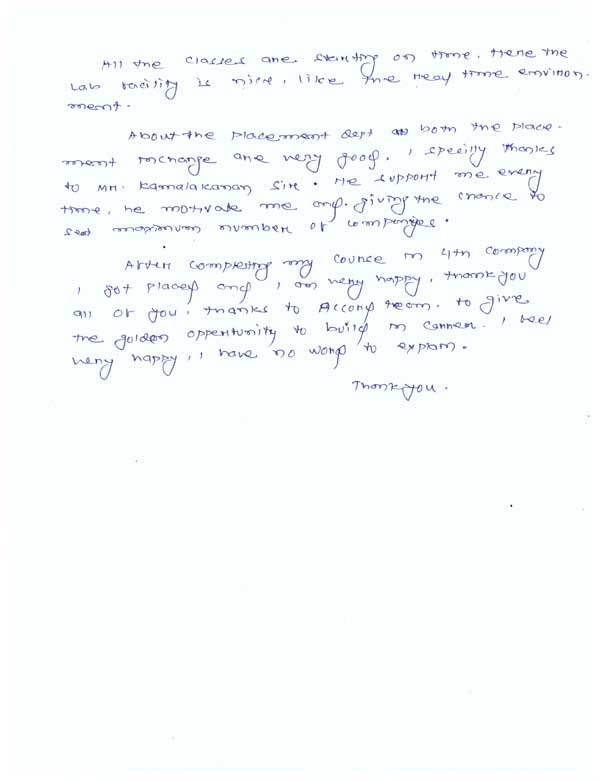 All the classes are starting on time. Here the
Lab facility is nice, like the real time environ-
ment.
About the placement dept both the place-
ment incharge are very good. I specilly thanks
to Mr. Kamalakanan Sir. He support me every
time, he motivate me and. giving the chance to
maximum number of companies.
After completing my course in 4th company
I got placed and I am very happy, thank you
all of you, thanks to Accord team. to give
the golden oppertunity to build my carreer. I feel
very happy, I have no word to explain.
Thank you.